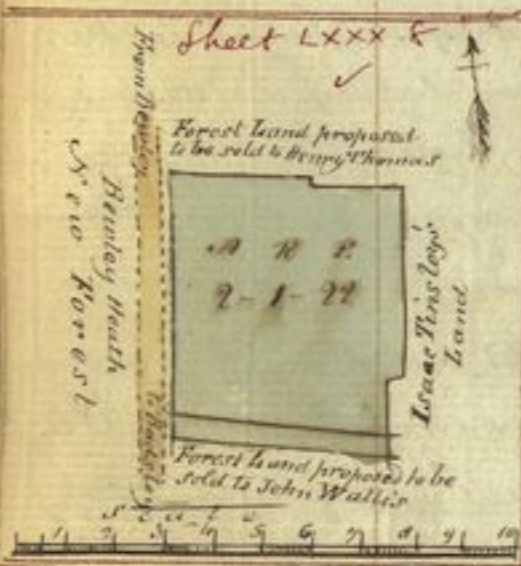 Sheet LXXX 8
Forest Land proposed
to be sold to Henry Thomas
From Bewley
Bewley Heath
New Forest
A R P
2 - 1 - 22
Isaac Tinsley's
Land
Forest Land proposed to be
sold to John Wallis
Scale
1 2 3 4 5 6 7 8 9 10